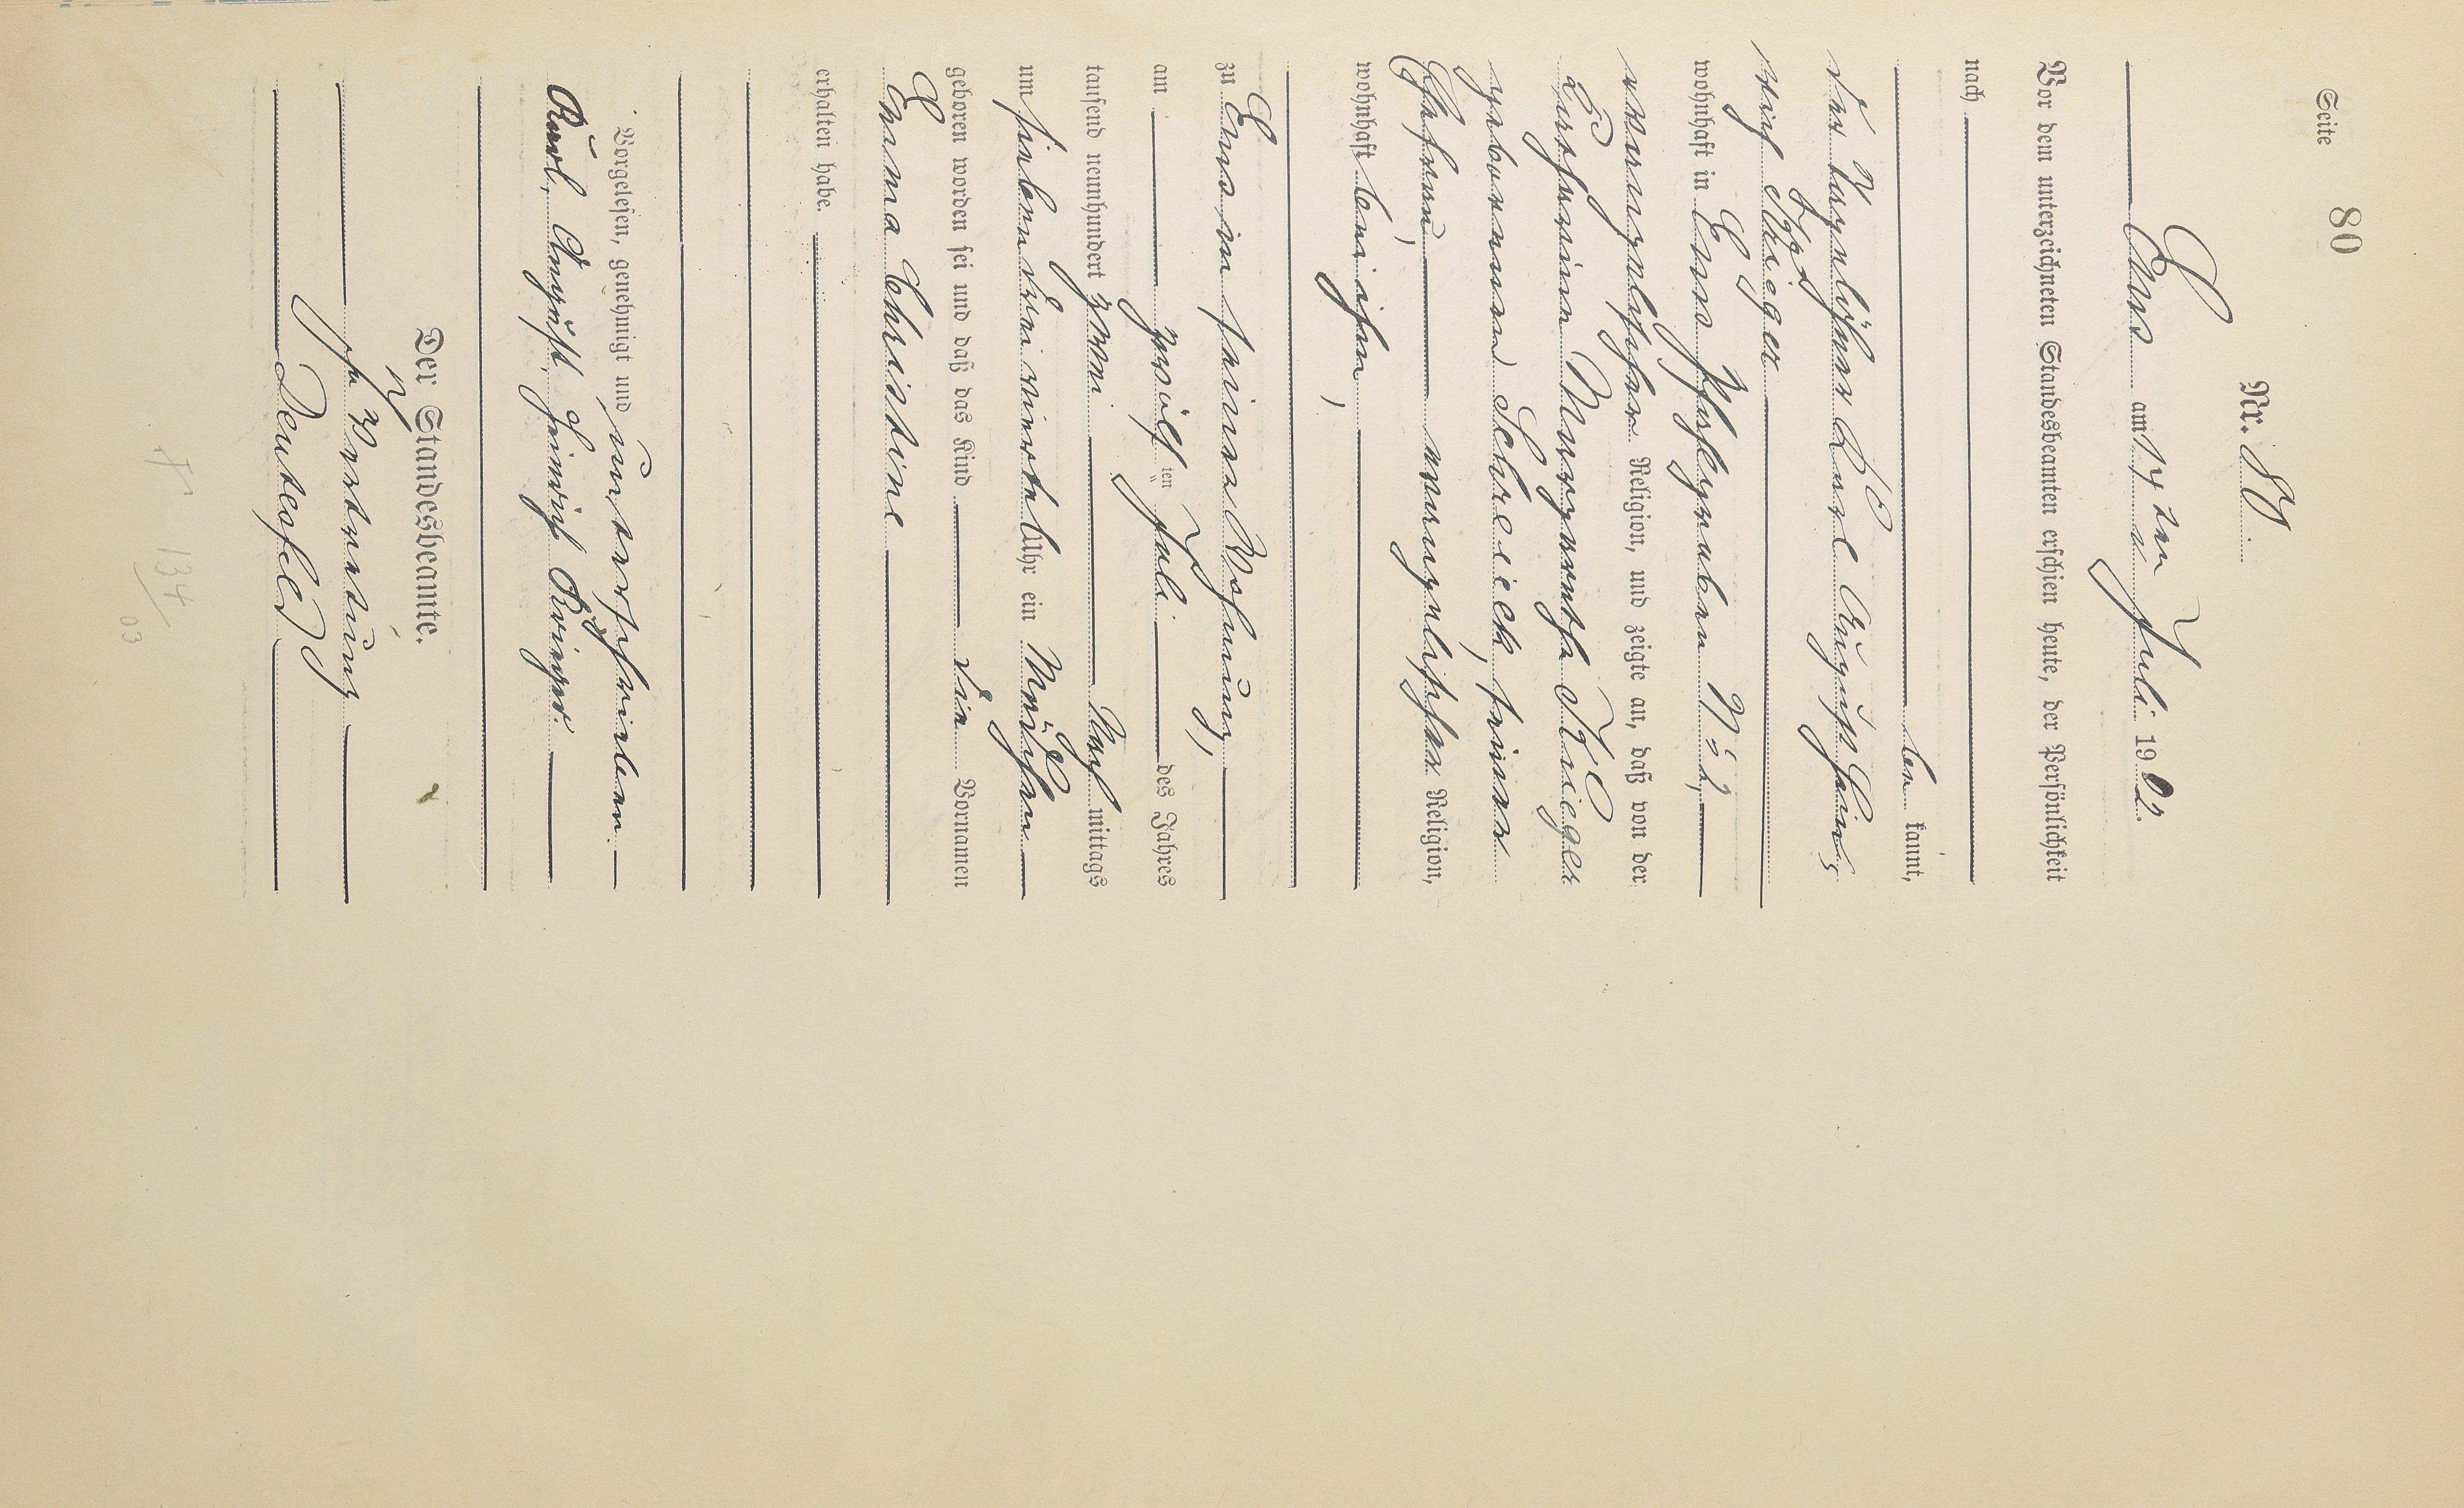 Seite 80
Nr. 80
Ems am 14ten Juli 1902.
Vor dem unterzeichneten Standesbeamten erschien heute, der Persönlichkeit
nach
be kannt,
der Tagelöhner Karl August Hein=
rich Krieger
wohnhaft in Ems Pfahlgraben No 2,
evangelischer Religion, und zeigte an, daß von der
Katharina Margaretha Krieger
geborenen Schreick, seiner
Ehefrau, evangelischer Religion,
wohnhaft bei ihm,
zu Ems in seiner Wohnung,
am zwölf ten Juli des Jahres
tausend neunhundert zwei Nach mittags
um sieben drei viertel Uhr ein Mädchen
geboren worden sei und daß das Kind die Vornamen
Emma Christine
erhalten habe.
Vorgelesen, genehmigt und unterschrieben.
Karl, August, Heinrich Krieger.
Der Standesbeamte.
In Vertretung
134
03